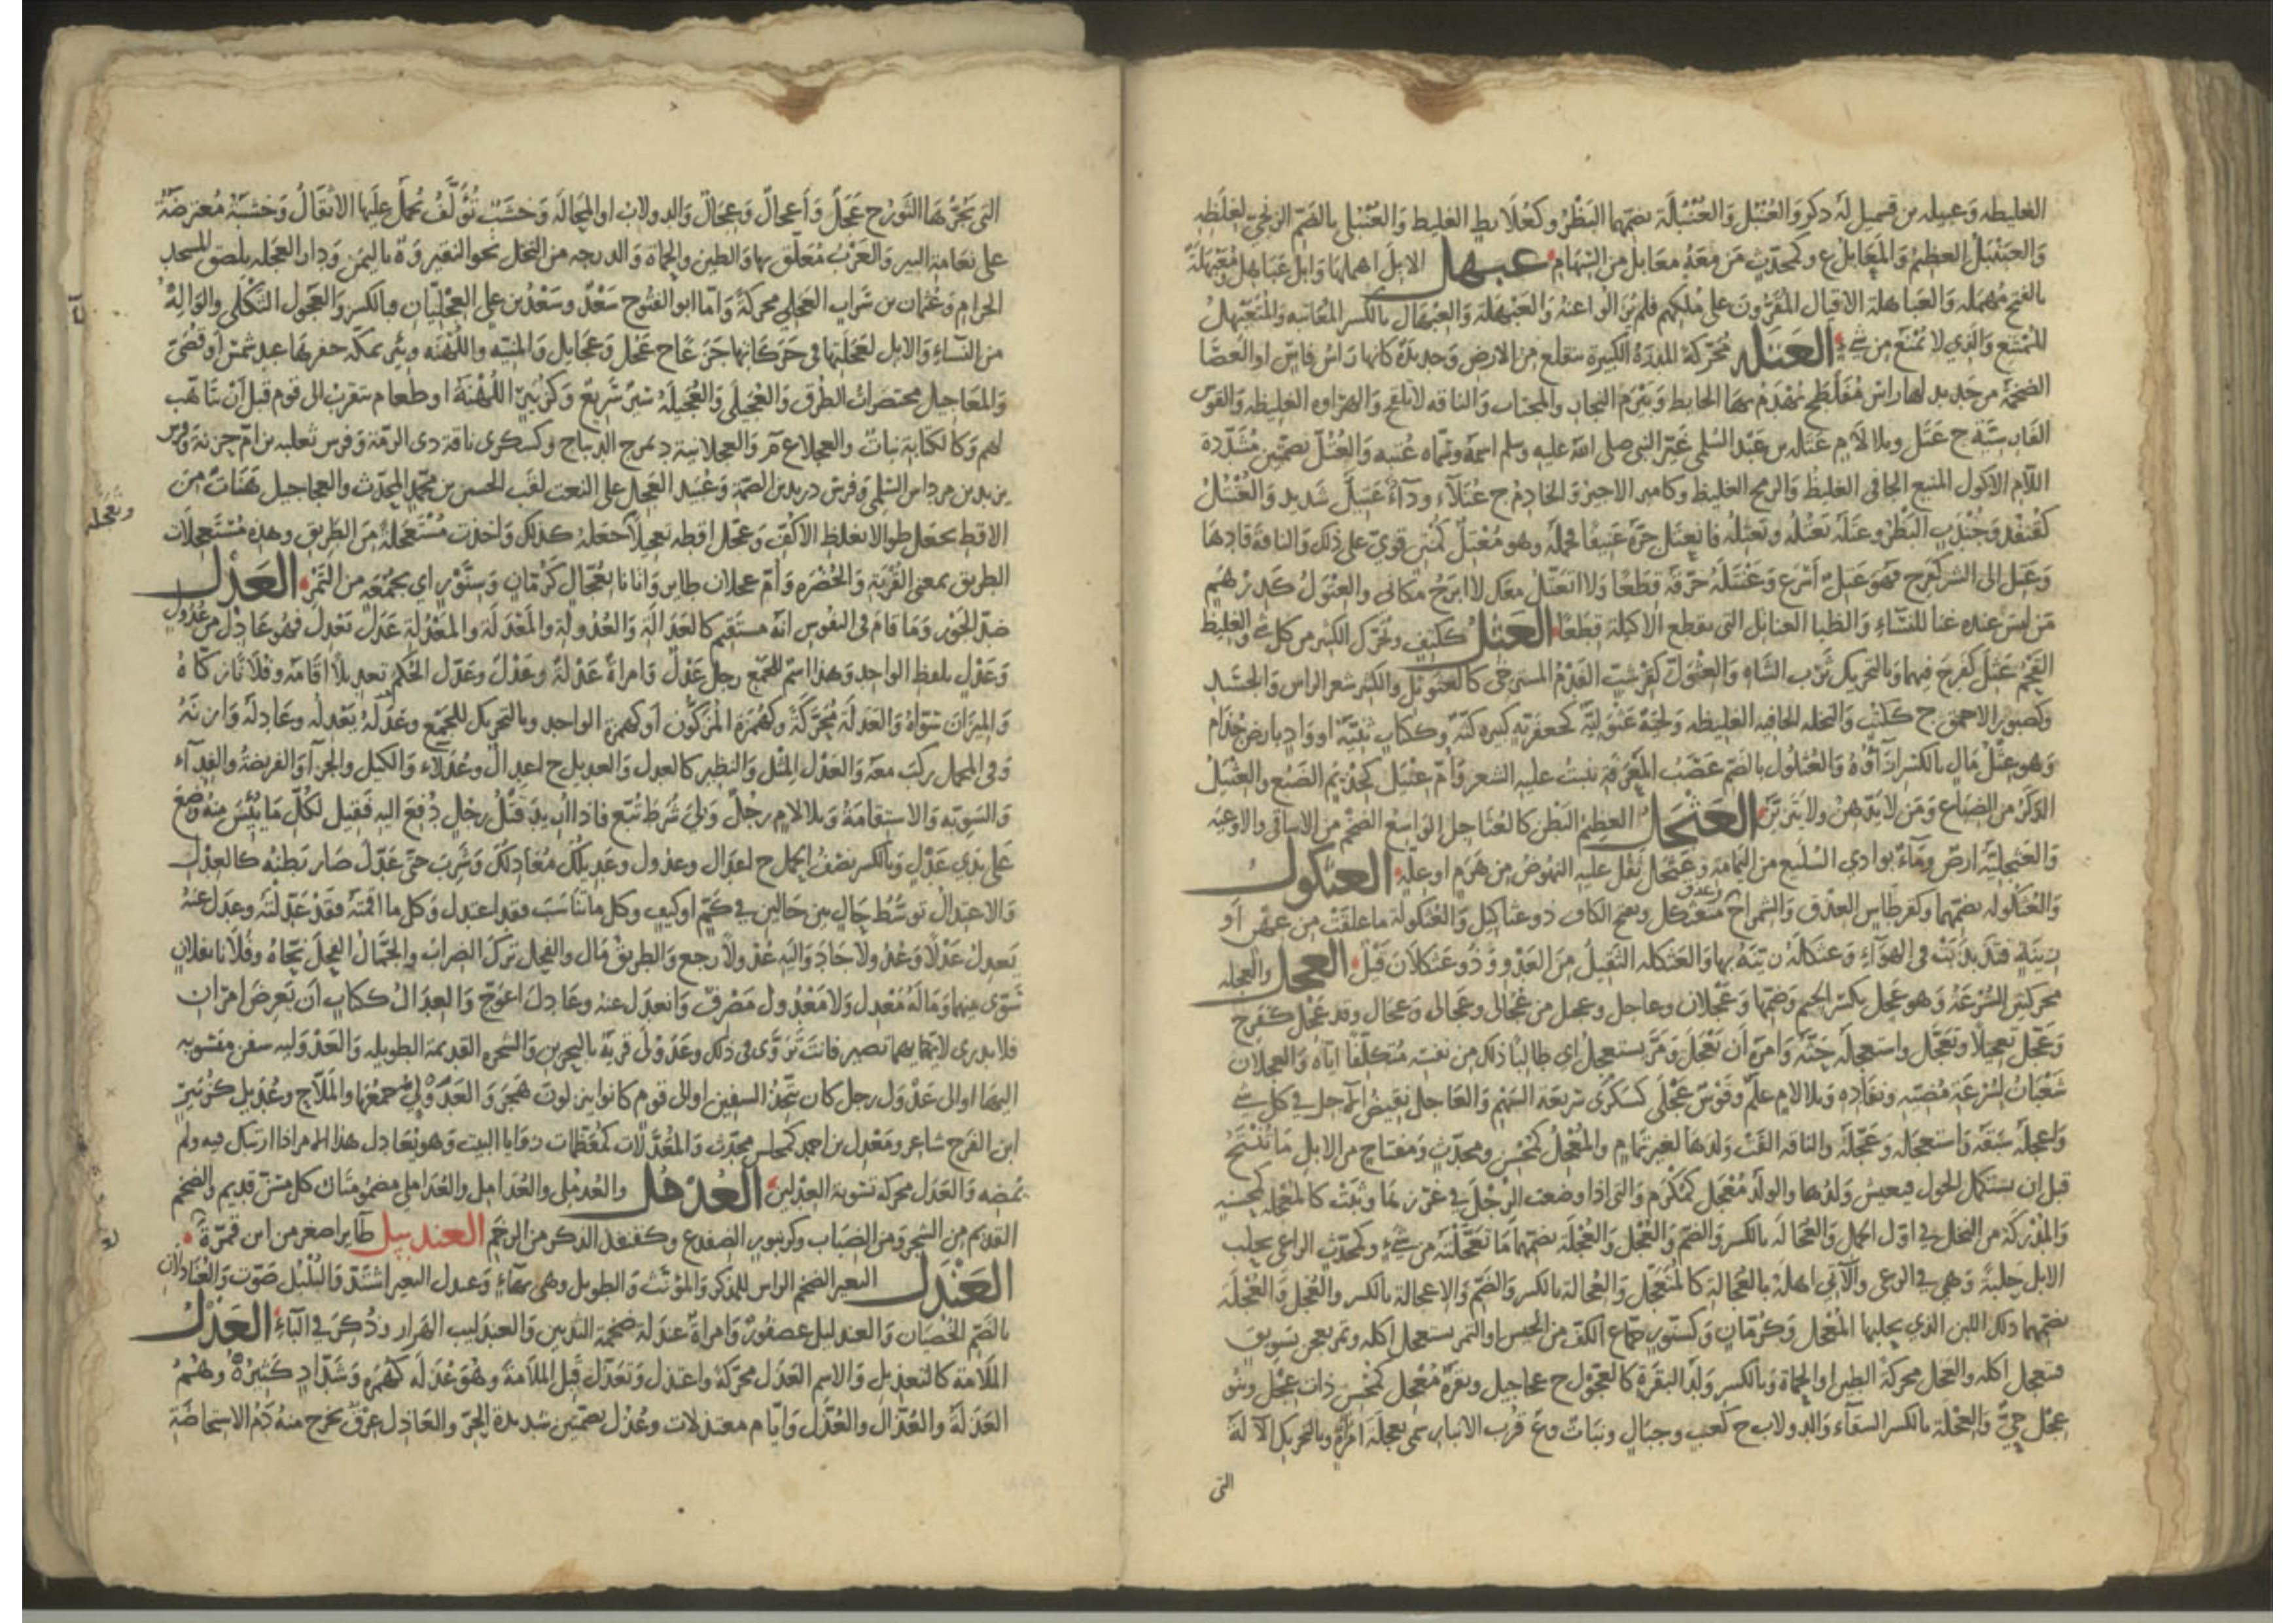 الغليظه وعبيله بن قسميل له ذكر والعُنْبُل والعُنْبُلَة بضمهما البَظْرُ وكعُلابط الغليظ والعُنْبُلي بالضم الزنجي لغلظه
والعَبَنْبَلُ العظيمُ والمَعَابلُ ع وكمحدّث مَن مَعَهُ معَابل من السِّهَام عبهل الابلَ اهملها وابل عَبَاهل ومُعَبْهَلَةٌ
بالفتح مُهمله والعَبَاهلة الاقيال المُقَرُّونَ على مُلكهم فلم يُزالُوا عنهُ والعَبْهَلَة والعِبْهَال بالكسر المعاتبه والمُتَعَبْهِلُ
المُمتَنع والذي لا يُمنَع من شي العَتَله محَرّكة المدَرَة الكبيرة تنقلع من الارض وحديدَة كانها رَاسُ فاسٍ او العَصَا
الضخمَة من حَديد لها راسٌ مُفَلطَح يُهْدَمُ بهَا الحايط وبَيْرَم النجار والمجتاب والناقه لا تلقح والهراوه الغليظه والقوس
الفَارسيَّة ج عَتَل وبلا لام عَتَله بن عَبْد السُّلمي غَيّر النبي صلى الله عليه وسلم اسمَهُ وسمّاه عُتبه والعُتُلّ بضمتين مُشَدّدة
اللّام الاكول المنيع الجافي الغليظُ والرمح الغليظ وكامير الاجير والخادِمُ ج عُتَلآء ودآءٌ عَتيل شَديد والعُنْتُلُ
كقُنْفُد وجُنْدَب البَظْرُ وعَتَلَه يَعْتُلُه ويَعْتِلُه فانعتَل جَرّه عَنيفًا فحمله وهو مُعْتِل كمُنْبَر قويّ على ذلك والناقَة قادهَا
وعَتِل الى الشر كفرِح فهوَ عَتِلٌ أَسْرَع وعَنْتَلَهُ خرّقه قِطَعًا ولا انعَتِلُ معَك لا ابرَحُ مكاني والعِتْوَلُ كدِرْهَم
مَن ليسَ عنده غنا للنسَاءِ والظبا العناتل التي تقطع الاكيلة قِطَعًا العَثِل ككتِف ويُحَرّك الكثير من كل شي والغليظ
الفَخْمُ عَثِلَ كفرِح فيهما وبالتحريك ثَرْب الشاه والعِثْوَلّ كقِرشَبّ الفَدْمُ المسترخي كالعَثَوثَل والكثير شعر الراس والجسَد
وكصبور الاحمق ج ككتُب والنخله الجافيه الغليظه ولحيَة عِثْوَلِيَّة كجعفريّه كبيره كثّه وككتاب ثَنِيّة او واد بارض جُذَام
وهو عِثْلُ مَال بالكسر ازآؤُهُ والعُثلول بالضم عَصَب المَعْرفة ينبت عليه الشعر وأمّ عِثْيَل كحِذْيَم الضَبُع والعِثْيَلُ
الذكر من الضباع ومَن لا يدّهن ولا يَتزيّن العَثْجَل العظيم البَطن كالعُثَاجل الواسع الضخم من الاساقي والاوعيَه
والعَثجليّة ارض ومآءٌ بوادي السُّليع من اليمامَة وعَثْجَل ثقل عليه النهُوضُ من هَرَم او علّة العثكول
والعُثكُوله بضمهما وكقرطاس العذق والشمراخ عذق متعَثكل وبفتح الكاف ذو عثاكيل والعُثكولة ما علقَتْ من عِهْن او
زينَةٍ فتذَبذبَتْ في الهوَآءِ وعثكَلَهُ زيّنَهُ بها والعَثكله الثَّقيلُ من العَدْوِ وذُو عَثكلَان قَيْل العجل والعجله
محركتين السُّرعَة وهو عَجِل بكسر الجيم وضمّها وعَجْلان وعاجل وعجيل من عَجَالى وعُجالى وعِجَال وقد عَجِل كفرح
وعَجَّل تعجيلًا وتعَجَّل واستعجلَه حَثّه وامره أن يَعْجَل ومَرَّ يستعجل اي طالبًا ذلك من نفسه مُتكلّفًا ايّاه والعجلان
شَعْبَان لسُرعَة مُضيّه ونفاده وبلا لام علَم وقَوْس عَجْلَى كسَكْرَى سريعَة السَّهم والعَاجل نقيضُ الآجل في كل شي
وأعجلهُ سَبَقَه واستعجَله وعَجّلَه والناقه القت ولدهَا لغير تمَام والمُعْجِلُ كمُحسِن ومحدّث ومفتاح من الابل مَا تُنْتَجُ
قبل ان تستكمل الحول فيعيش ولدُها والولد مُعْجَل كمُكْرَم والتي اذا وضعت الرِّجْلَ في غرزها وثَبَت كالمُعجله كمحسنه
والمُدْرِكة من النخل في اول الحمل والعُجَالَة بالكسر والضم والعُجْل والعُجْلة بضمهمَا مَا تَعَجَّلْتَه من شيء وكمحدّث الراعي يحلب
الابل حلبَة وهي في الرعي والآتي اهلهُ بالعُجَالة كالمتعجّل والعُجالة بالكسر والضم والإعجالة بالكسر والعُجل والعُجْلَة
بضمهما ذلك اللبن الذي يحلبها المُعَجّل وكرُمّان وكسنّور جمّاع الكف من الحيس او التمر يستعجل اكله وتمر يعجن بسويق
فتعجل اكله والعَجَل محركة الطين او الحمأة وبالكسر ولد البقرَة كالعجّول ج عجاجيل وبقرَة مُعْجِل كمُحسِن ذات عجل وبنو
عِجْل حيّ والعِجْلَة بالكسر السقآء والدولاب ج كعِنَب وجبَال ونبَات وع قرب الانبار سمي بعِجلَة امرأة وبالتحريك الآلة
التى
التي يجُرّهَا الثّور ج عَجَلٌ وأعجالٌ وعِجَالٌ والدولابُ او المحَالة وخشَبٌ تُؤَلَّفُ تُحمَلُ عليها الاثقالُ وخشبَةٌ مُعترضَةٌ
على نعامة البير والغَرْبُ مُعَلّق بها والطين والحمأة والدرجه من النخل نحو النقير وة باليَمن ودار العجله بلصق المسجد
الحرام وعُثمان بن شراب العَجلي محركةً وامّا ابو الفتوح سَعْدٌ وسَعْدُ بن علي العِجْليّان فبالكسر والعَجول الثكلى والوالِهُ
من النّسآءِ والابل لعَجَلَتِها في حَرَكَاتها جَزَعًا ج عُجُل وعَجَايل والمنيّه واللُّهْنَه وبئر بمكّه حفرها عبد شمس او قُصَيّ
والمعَاجيل مختصَرات الطُّرق والعُجَيلَى والعُجَيلَة سَيْرٌ سَرِيعٌ وكزُبَيْرٍ اللُّهْنَةُ او طعام يتقرب الى قوم قبل أن يتأهّب
لهم وككتَابَة نباتٌ والعجلاء ع م والعجلانية د بمرج الديباج وكسكرى ناقة ذى الرمّة وفرس ثعلبه بن امّ حزنة وفرس
يزيد بن مرداس السُّلمي وفرس دريد بن الصمّة وعُبَيد العِجل على النعت لقَب الحسين بن محمّد المحدّث والعجاجيل هَنَاتٌ من
وتعجله
الاقط يجعل طوالا بغلظ الاكُفّ وعَجّل اقطه تعجيلًا جعَلَهُ كذلك واخذت مُستَعجلةً من الطريق وهذه مُسْتَعجِلات
الطريق بمعنى القُرْبَة والخُضْرَه وأمّ عجلان طاير واتانا بعُجّال كرُمّان وسنّوْر اي بجُمْعَه من التَّمر العَدْل
ضدّ الجَوْر ومَا قَامَ في النفوس أنّه مستَقيم كالعَدَالَة والعُدُولة والمَعْدَلَة والمَعْدِلة عَدَلَ يَعْدِلُ فهو عَادِل من عُدُول
وعَدْل بلفظ الواحد وهذا اسم للجمع رجل عَدْل وامراة عَدْلة وعَدْل وعَدّل الحكم تعديلًا اقامَه وفلانًا زكّاهُ
والميزَان سَوّاهُ والعَدَلَة مُحَرّكَة وكهُمَزة المُزكّون او كهمزة الواحد وبالتحريك للجميع وعَدَلَهُ يَعْدِلُه وعادلَهُ وازنَهُ
وفي المحمل ركبَ معَه والعَدْل المِثْل والنظير كالعِدل والعديل ج اعدَال وعُدلاء والكيل والجزآ والفريضة والفدآء
والسَّويّه والاستقامَةُ وبلا لام رجُلٌ وَليَ شُرَط تُبّع فاذا أُريدَ قتلُ رجُل دُفعَ اليه فقيل لكُلّ مَا يُئِسَ منهُ وُضع
على يدَي عَدْل وبالكسر نصْفُ الحمل ج اعدَال وعدول وعَديلُك مُعَادِلُك وشرِبَ حتى عَدّل صَار بَطنُه كالعِدل
والاعتدالُ توسُّطُ حَال بين حَالين في كمّ او كيف وكل ما تناسَبَ فقد اعتدل وكل ما اقمتَه فقد عَدَلتَه وعدَل عنهُ
يَعدِلُ عَدْلًا وعُدُولًا حَادَ واليه عُدُولًا رجع والطريقُ مَال والفحل ترَك الضراب والجمّال الفحل نحّاه وفلانا بفلان
سَوّى بينهما ومَاله مَعْدِل ولا مَعْدُول مَصْرِفٌ وانعدَل عنه وعَادلَ اعوجّ والعِدَالُ ككتاب أن يَعرضَ امرَان
فلا يدرى لايّهما يصير فانتَ تَروّى في ذلك وعَدَوْلَى قريَة بالبحرين والشجره القديمَة الطويله والعَدَوليه سفن منسُوبه
اليهَا او الى عَدْوَل رجل كان يتّخِذُ السفن او الى قوم كانوا ينزلون هَجَر والعَدَوْلِيُّ جمعها والملّاح وعُدَيل كزُبَير
ابن الفَرخ شاعر ومَعْدل بن احمد كمجلس محدّث والمُعَدَّلات كمُعَظّمات زوايا البيت وهو يُعَادِل هذا الامر اذا ارتبك فيه ولم
يمضه والعَدَل محركه تسويَة العِدْلين العُدْمُل والعُدمُلى والعُدَامِل والعُدَاملي مضمومتان كل مسنّ قديم والضخم
القديم من الشجر ومن الضِباب وكزنبور الضفدع وكقنفذ الذكر من الرخم العندبيل طاير اصغر من ابن تمّرَةَ
العَنْدَل البعير الضخم الراس للمذكر والمؤنّث والطويل وهي بهآءٍ وعندل البعير اشتدّ والبلبل صَوّت والعُنادلان
بالضّم الخصيَان والعندليل عصفُور وامراة عندَلة ضخمة الثديين والعندَليب الهَزار وذُكِرَ في البآءِ العَذْل
الملَامة كالتعذيل والاسم العَذَل محركة واعتذل وتعَذّل قَبِل الملامَة وهُوَ عُذَلَه كهُمَزه وشدّاد كثيرُهُ وهُمُ
العَذَلَةُ والعُذّال والعُذّل وايّام معتذلات وعُذُل بضمّتين شديدة الحرّ والعَاذِل عِرْقٌ يخرج منهُ دَم الاستحاضَة